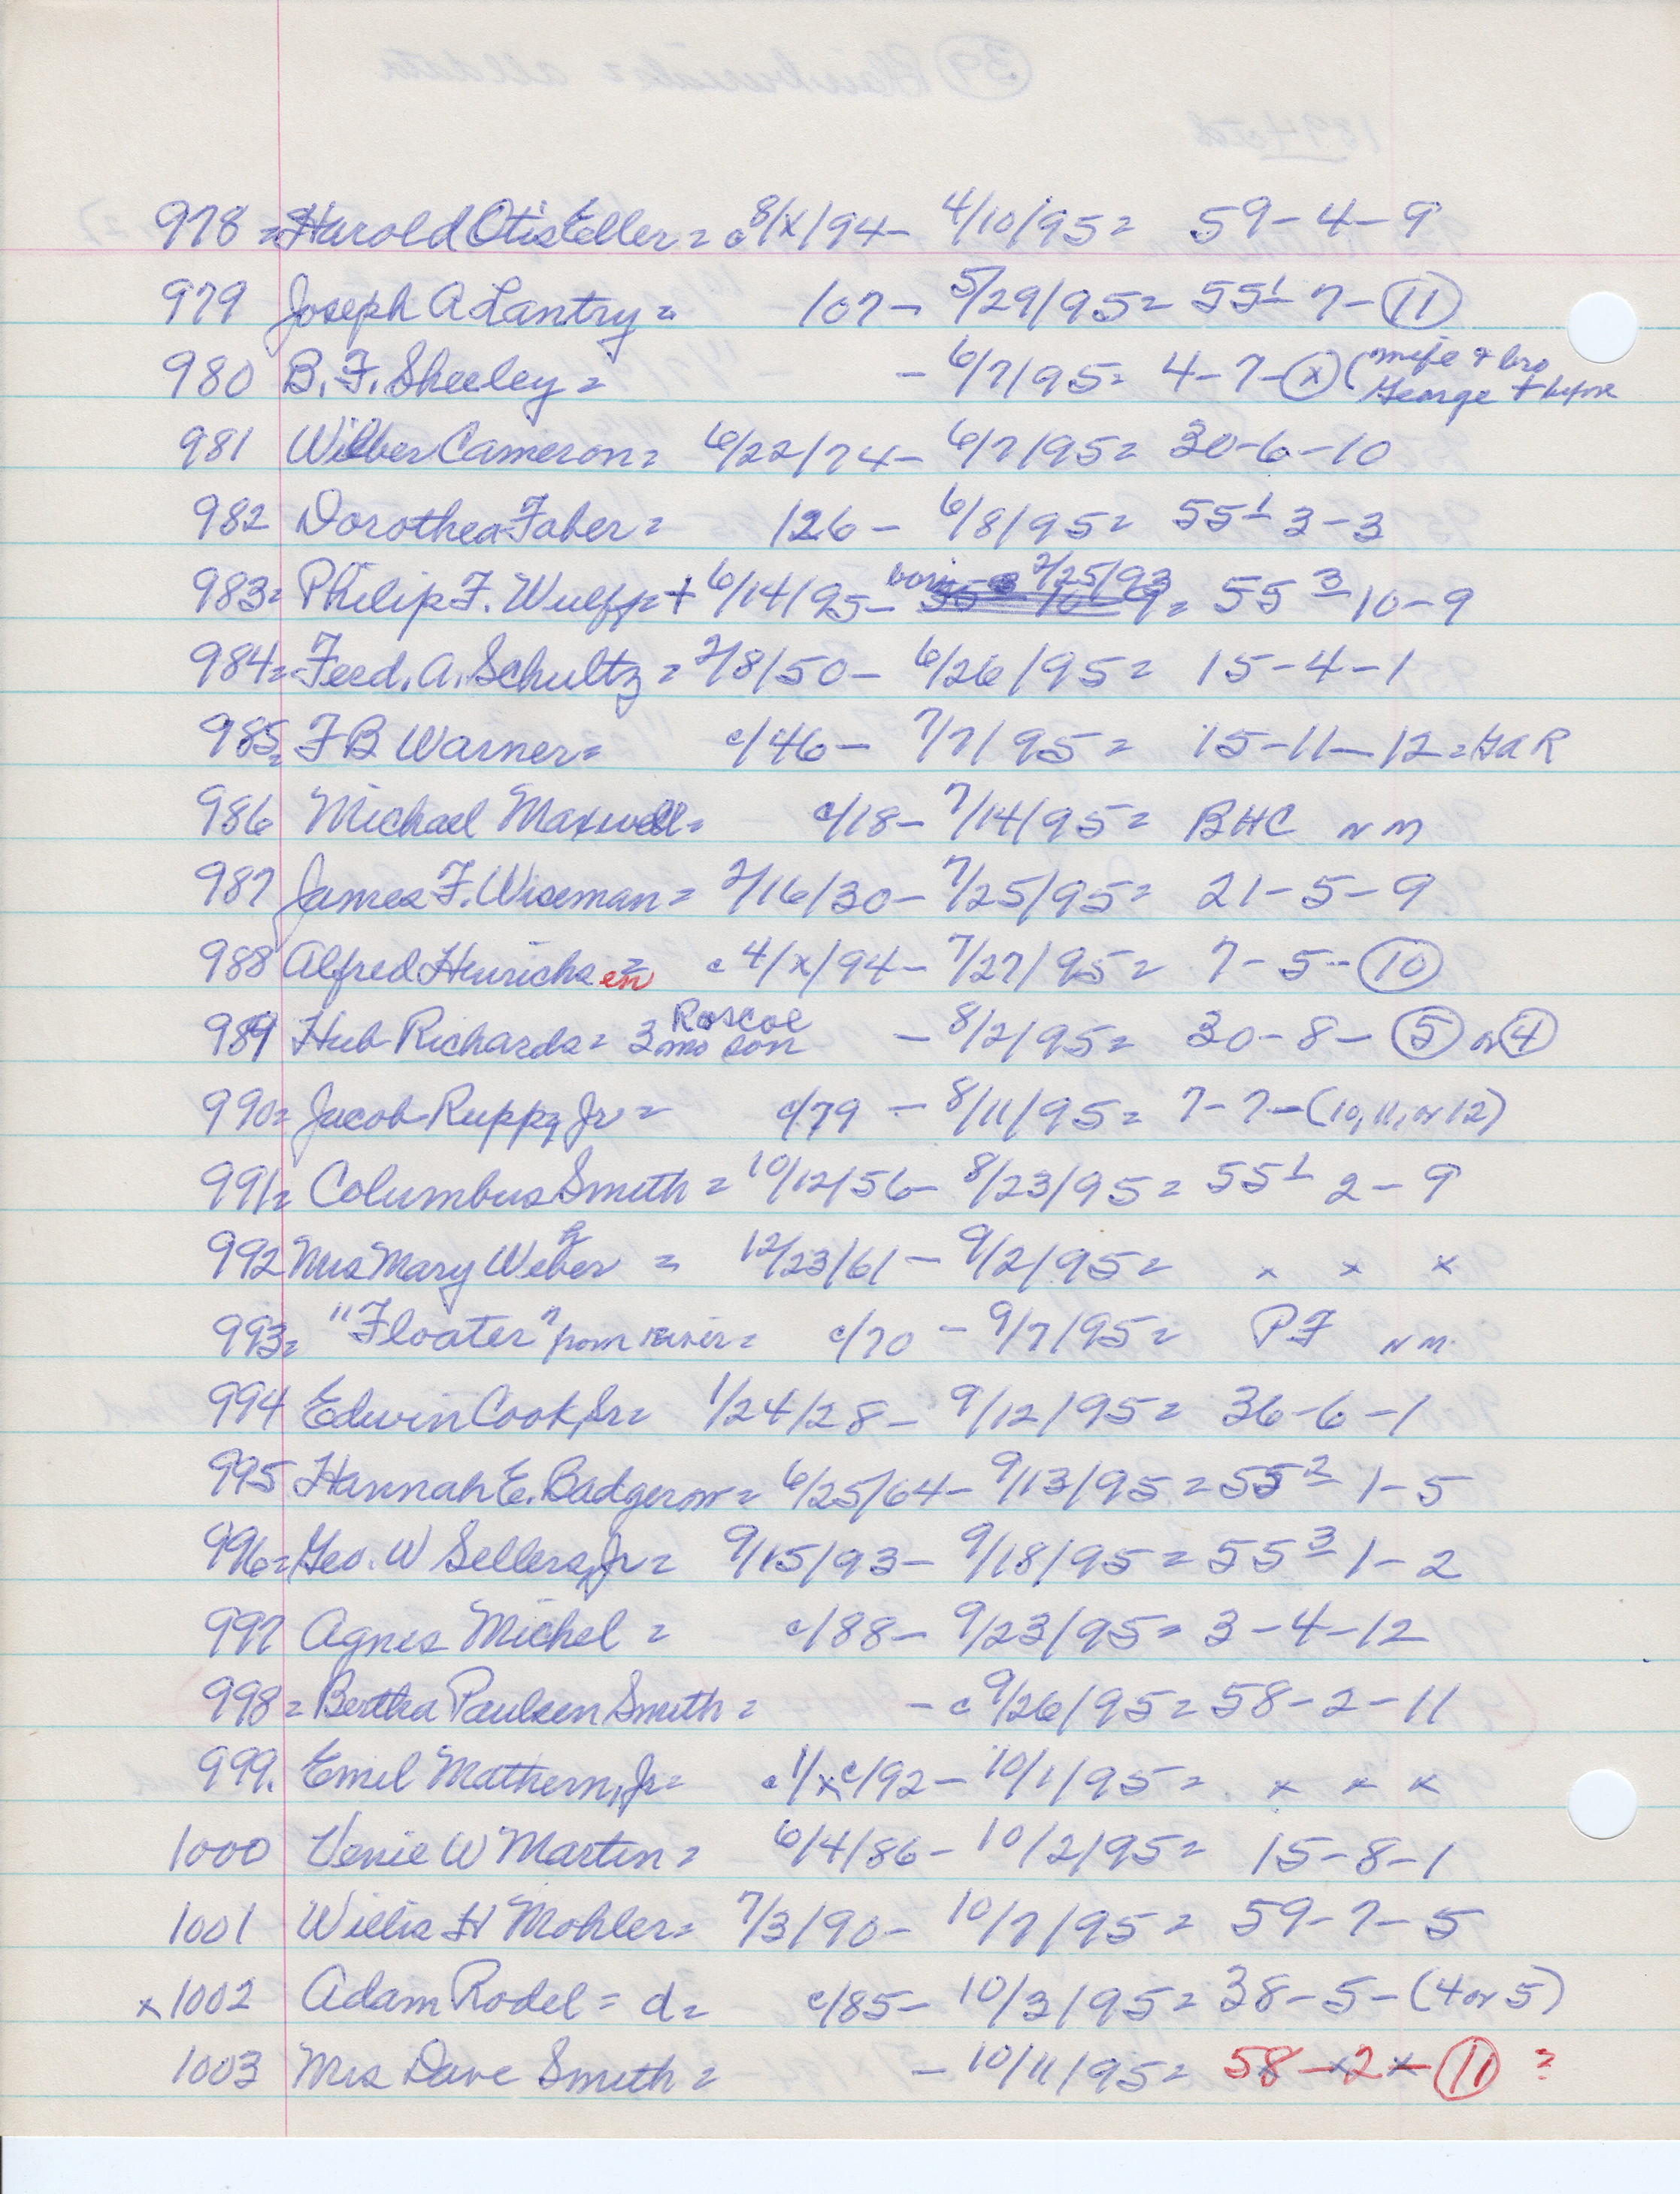 978 = Harold Otis Eller = c 8/x/94 - 4/10/95 = 59-4-9
979 Joseph A Lantry = 107 - 5/29/95 = 55 1 - 7 - 11
980 B. F. Sheeley = - 6/7/95 = 4-7-x (wife + bro
George + before
981 Wilber Cameron = 6/22/74 - 6/7/95 = 30-6-10
982 Dorothea Faber = 126 - 6/8/95 = 55 1 - 3 - 3
born 2/25/93
983 = Philip F. Wulff = + 6/14/95 - = 55 3 - 10 - 9
984 = Feed. A. Schultz = 2/8/50 - 6/26/95 = 15-4-1
985 = F B Warner = c/46 - 7/7/95 = 15-11-12 = GAR
986 Michael Maxwell = c/18 - 7/14/95 = BHC NM
987 James F. Wiseman = 2/16/30 - 7/25/95 = 21-5-9
988 Alfred Hinrichsen = c 4/x/94 - 7/27/95 = 7-5-10
Roscoe
989 Hub Richards = 3 mo son - 8/2/95 = 30-8-5 or 4
990 = Jacob Rupp, Jr = c/79 - 8/11/95 = 7-7-(10, 11, or 12)
991 = Columbus Smith = 10/12/56 - 8/23/95 = 55 1 - 2 - 9
992 Mrs Mary Weber = 12/23/61 - 9/2/95 = x x x
993 = "Floater" from river = c/70 - 9/7/95 = PF NM.
994 Edwin Cook, Sr = 1/24/28 - 9/12/95 = 36-6-1
995 Hannah E. Badgerow = 6/25/64 - 9/13/95 = 55 2 - 1 - 5
996 = Geo. W Sellers, Jr = 9/15/93 - 9/18/95 = 55 3 - 1 - 2
997 Agnes Michel = c/88 - 9/23/95 = 3-4-12
998 = Bertha Paulsen Smith = - c 9/26/95 = 58-2-11
999. Emil Mathern, Jr = c 1/x c/92 - 10/1/95 = x x x
1000 Venie W Martin = 6/4/86 - 10/2/95 = 15-8-1
1001 Willis H Mohler = 7/3/90 - 10/7/95 = 59-7-5
x 1002 Adam Rodel = d = c/85 - 10/3/95 = 38-5-(4 or 5)
1003 Mrs Dave Smith = - 10/11/95 = 58-2-11 ?